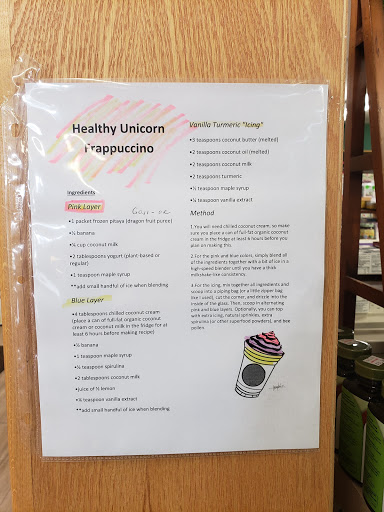 Healthy Unicorn
Frappuccino
Ingredients
Pink Layer
•1 packet frozen pitaya (dragon fruit puree)
•½ banana
•¼ cup coconut milk
•2 tablespoons yogurt (plant-based or
regular)
•1 teaspoon maple syrup
**add small handful of ice when blending
Blue Layer
•4 tablespoons chilled coconut cream
(place a can of full-fat organic coconut
cream or coconut milk in the fridge for at
least 6 hours before making recipe)
•½ banana
•1 teaspoon maple syrup
•½ teaspoon spirulina
•2 tablespoons coconut milk
•juice of ½ lemon
•¼ teaspoon vanilla extract
**add small handful of ice when blending
Vanilla Turmeric "Icing"
•3 teaspoons coconut butter (melted)
•2 teaspoons coconut oil (melted)
•2 teaspoons coconut milk
•2 teaspoons turmeric
teaspoon maple syrup
teaspoon vanilla extract
Method
1.You will need chilled coconut cream, so make
sure you place a can of full-fat organic coconut
cream in the fridge at least 6 hours before you
plan on making this.
2.For the pink and blue colors, simply blend all
of the ingredients together with a bit of ice in a
high-speed blender until you have a thick
milkshake-like consistency.
3.For the icing, mix together all ingredients and
scoop into a piping bag (or a little zipper bag
like I used), cut the corner, and drizzle into the
inside of the glass. Then, scoop in alternating
pink and blue layers. Optionally, you can top
with extra icing, natural sprinkles, extra
spirulina (or other superfood powders), and bee
pollen.